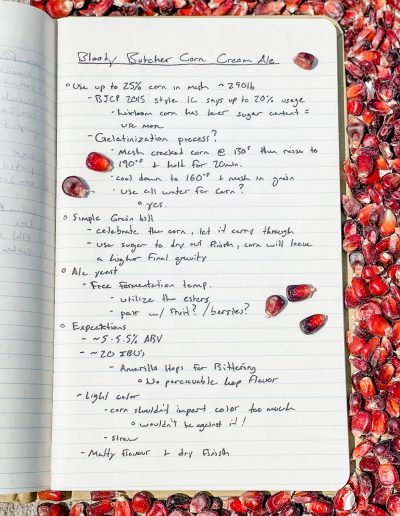 Bloody Butcher Corn Cream Ale
Use up to 25% corn in mash ~290lb
- BJCP 2015 style 1C says up to 20% usage
- heirloom corn has lower sugar content =
use more
- Gelatinization process?
- Mash cracked corn @ 130°F then raise to
190°F & hold for 20min.
- cool down to 160°F & mash in grain
- use all water for corn?
yes.
Simple Grain bill
- celebrate the corn, let it carry through
- use sugar to dry out finish, corn will leave
a higher final gravity
Ale yeast
- Free fermentation temp.
- utilize the esters
- pair w/ fruit? /berries?
Expectations
- ~5-5.5% ABV
- ~20 IBU's
- Amarillo Hops for Bittering
No perceivable hop flavor
- Light color
- corn shouldn't impart color too much
wouldn't be against it!
- straw
- Malty flavour & dry finish